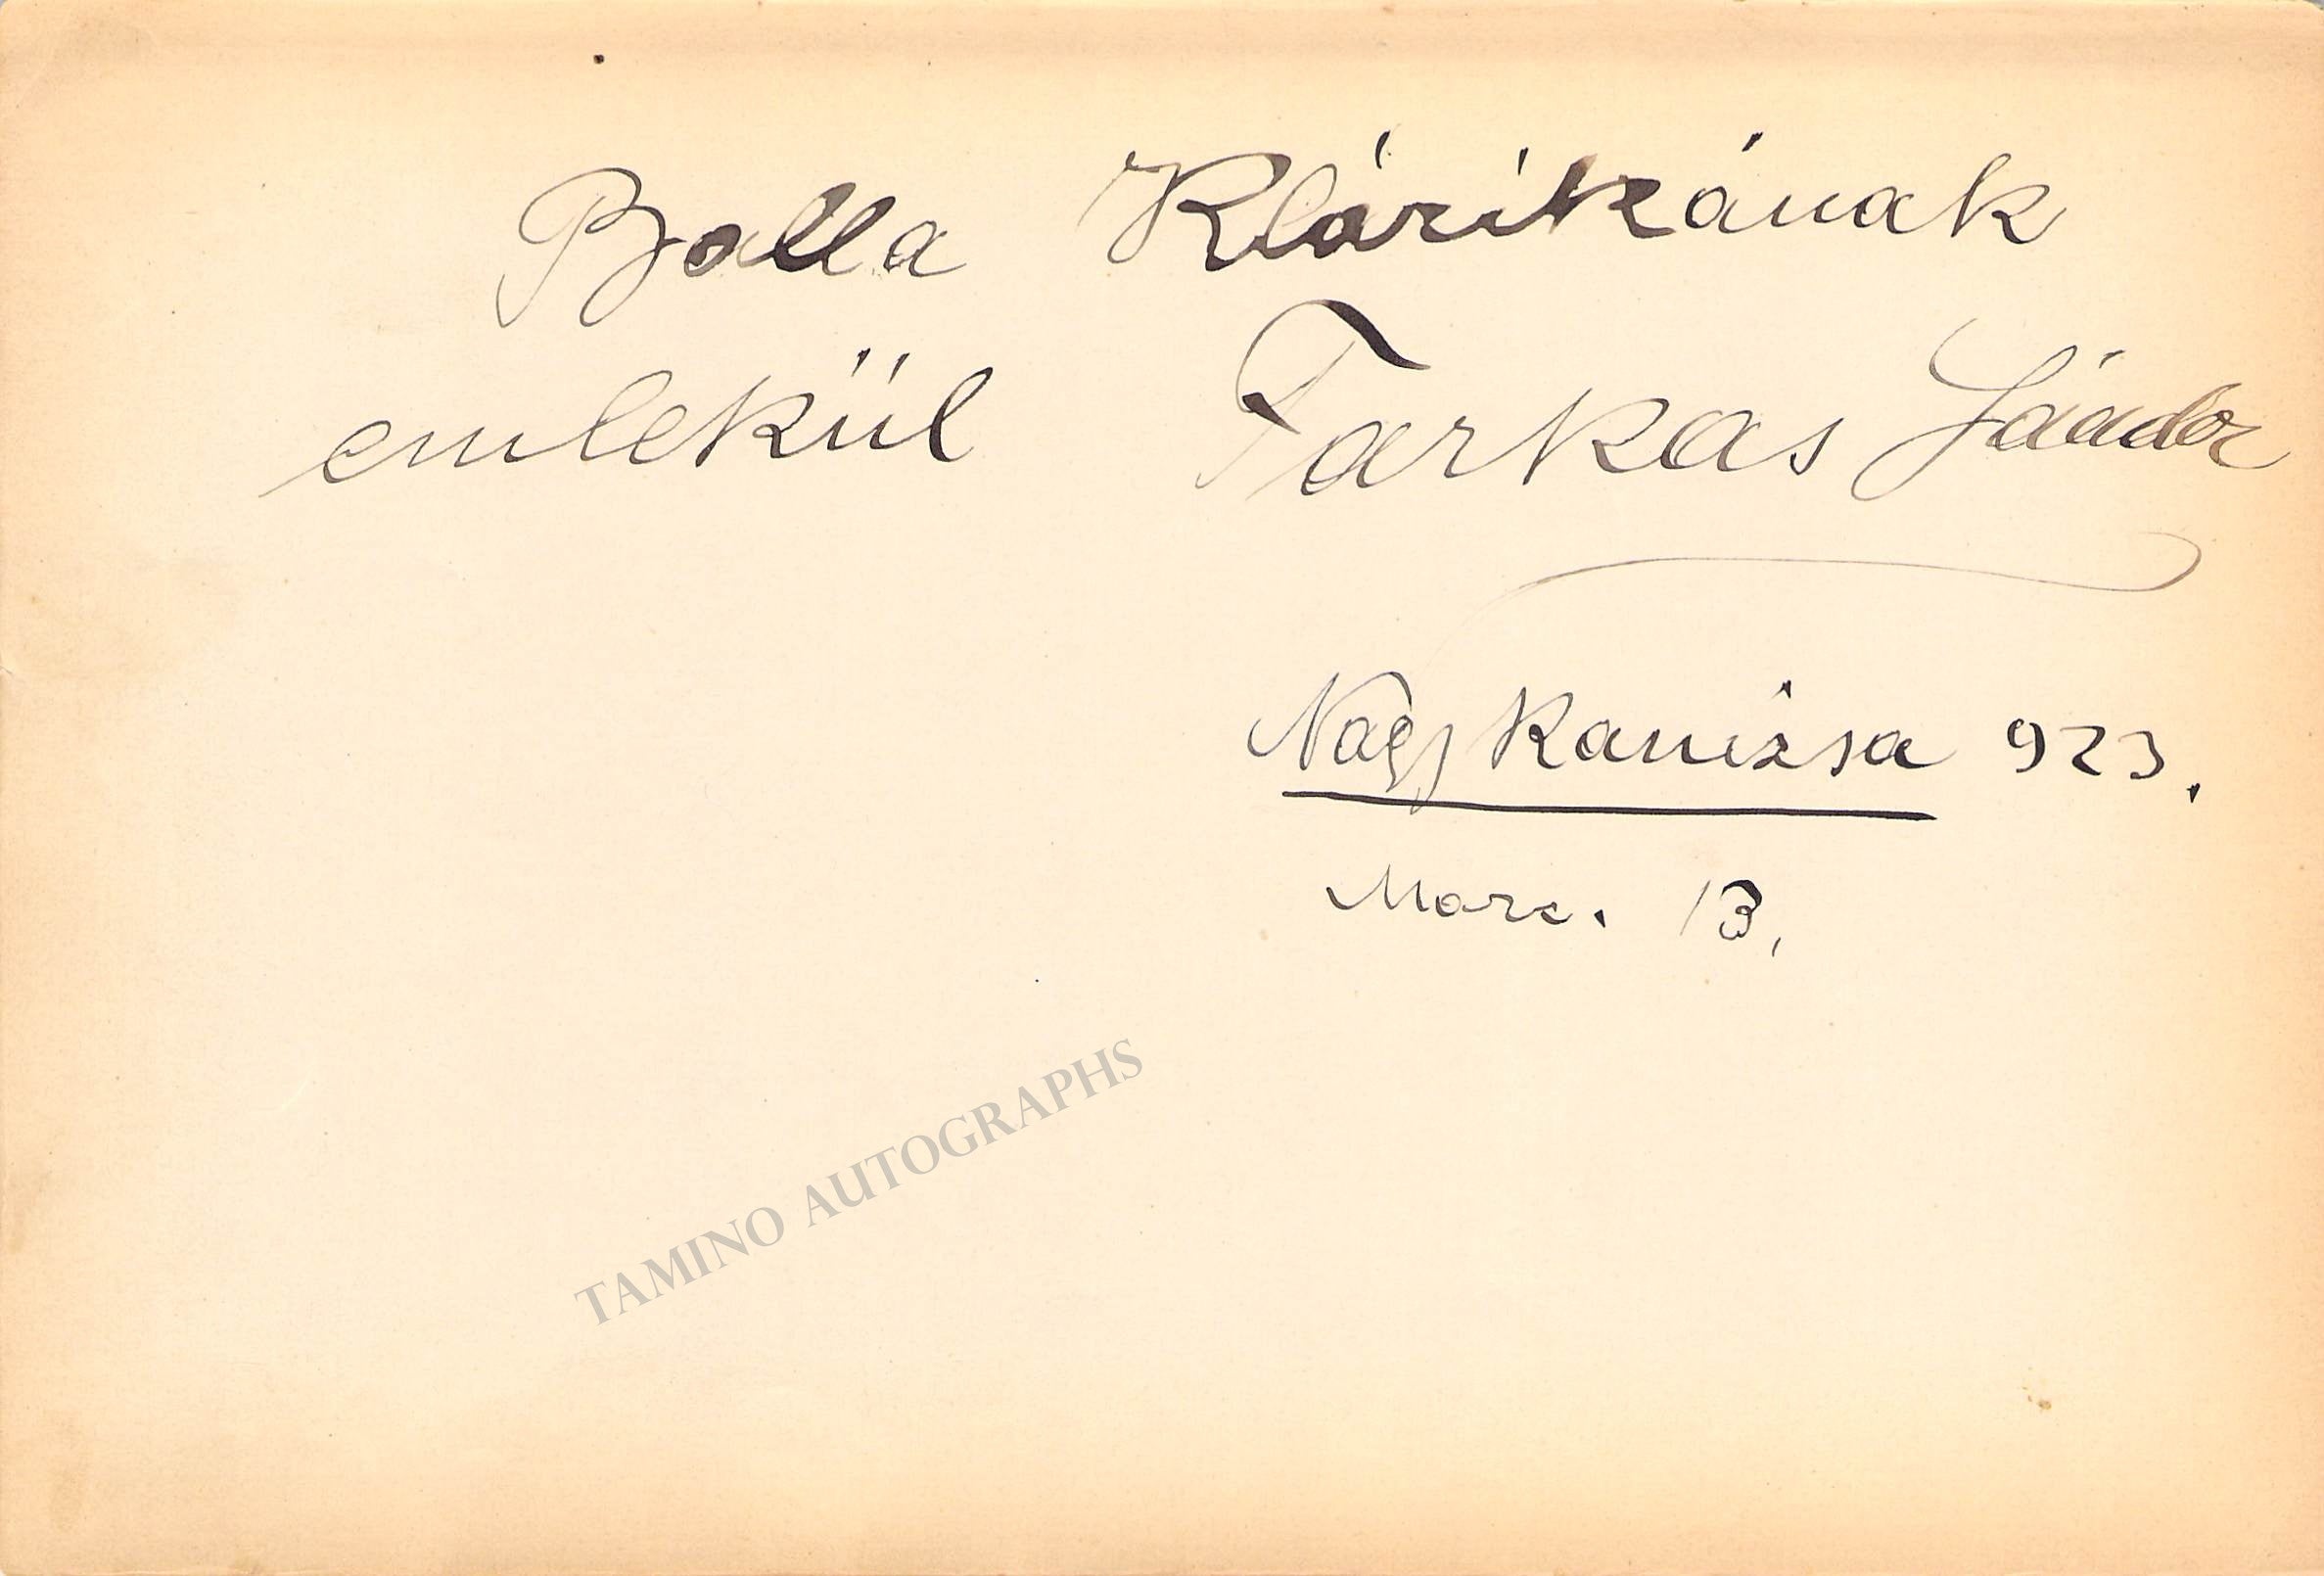 Balla Klárikának
emlekül Farkas Sándor
Nagy Kanizsa 923.
Marc. 13.
TAMINO AUTOGRAPHS